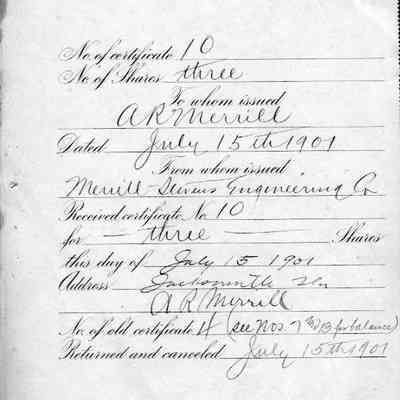 No. of certificate 10
No. of Shares three
To whom issued
A R Merrill
Dated July 15th 1901
From whom issued
Merrill-Stevens Engineering Co
Received certificate No. 10
for — three — Shares
this day of July 15 1901
Address Jacksonville Fla
A R Merrill
No. of old certificate 4 (see Nos 7 & 13 for balance)
Returned and canceled July 15th 1901